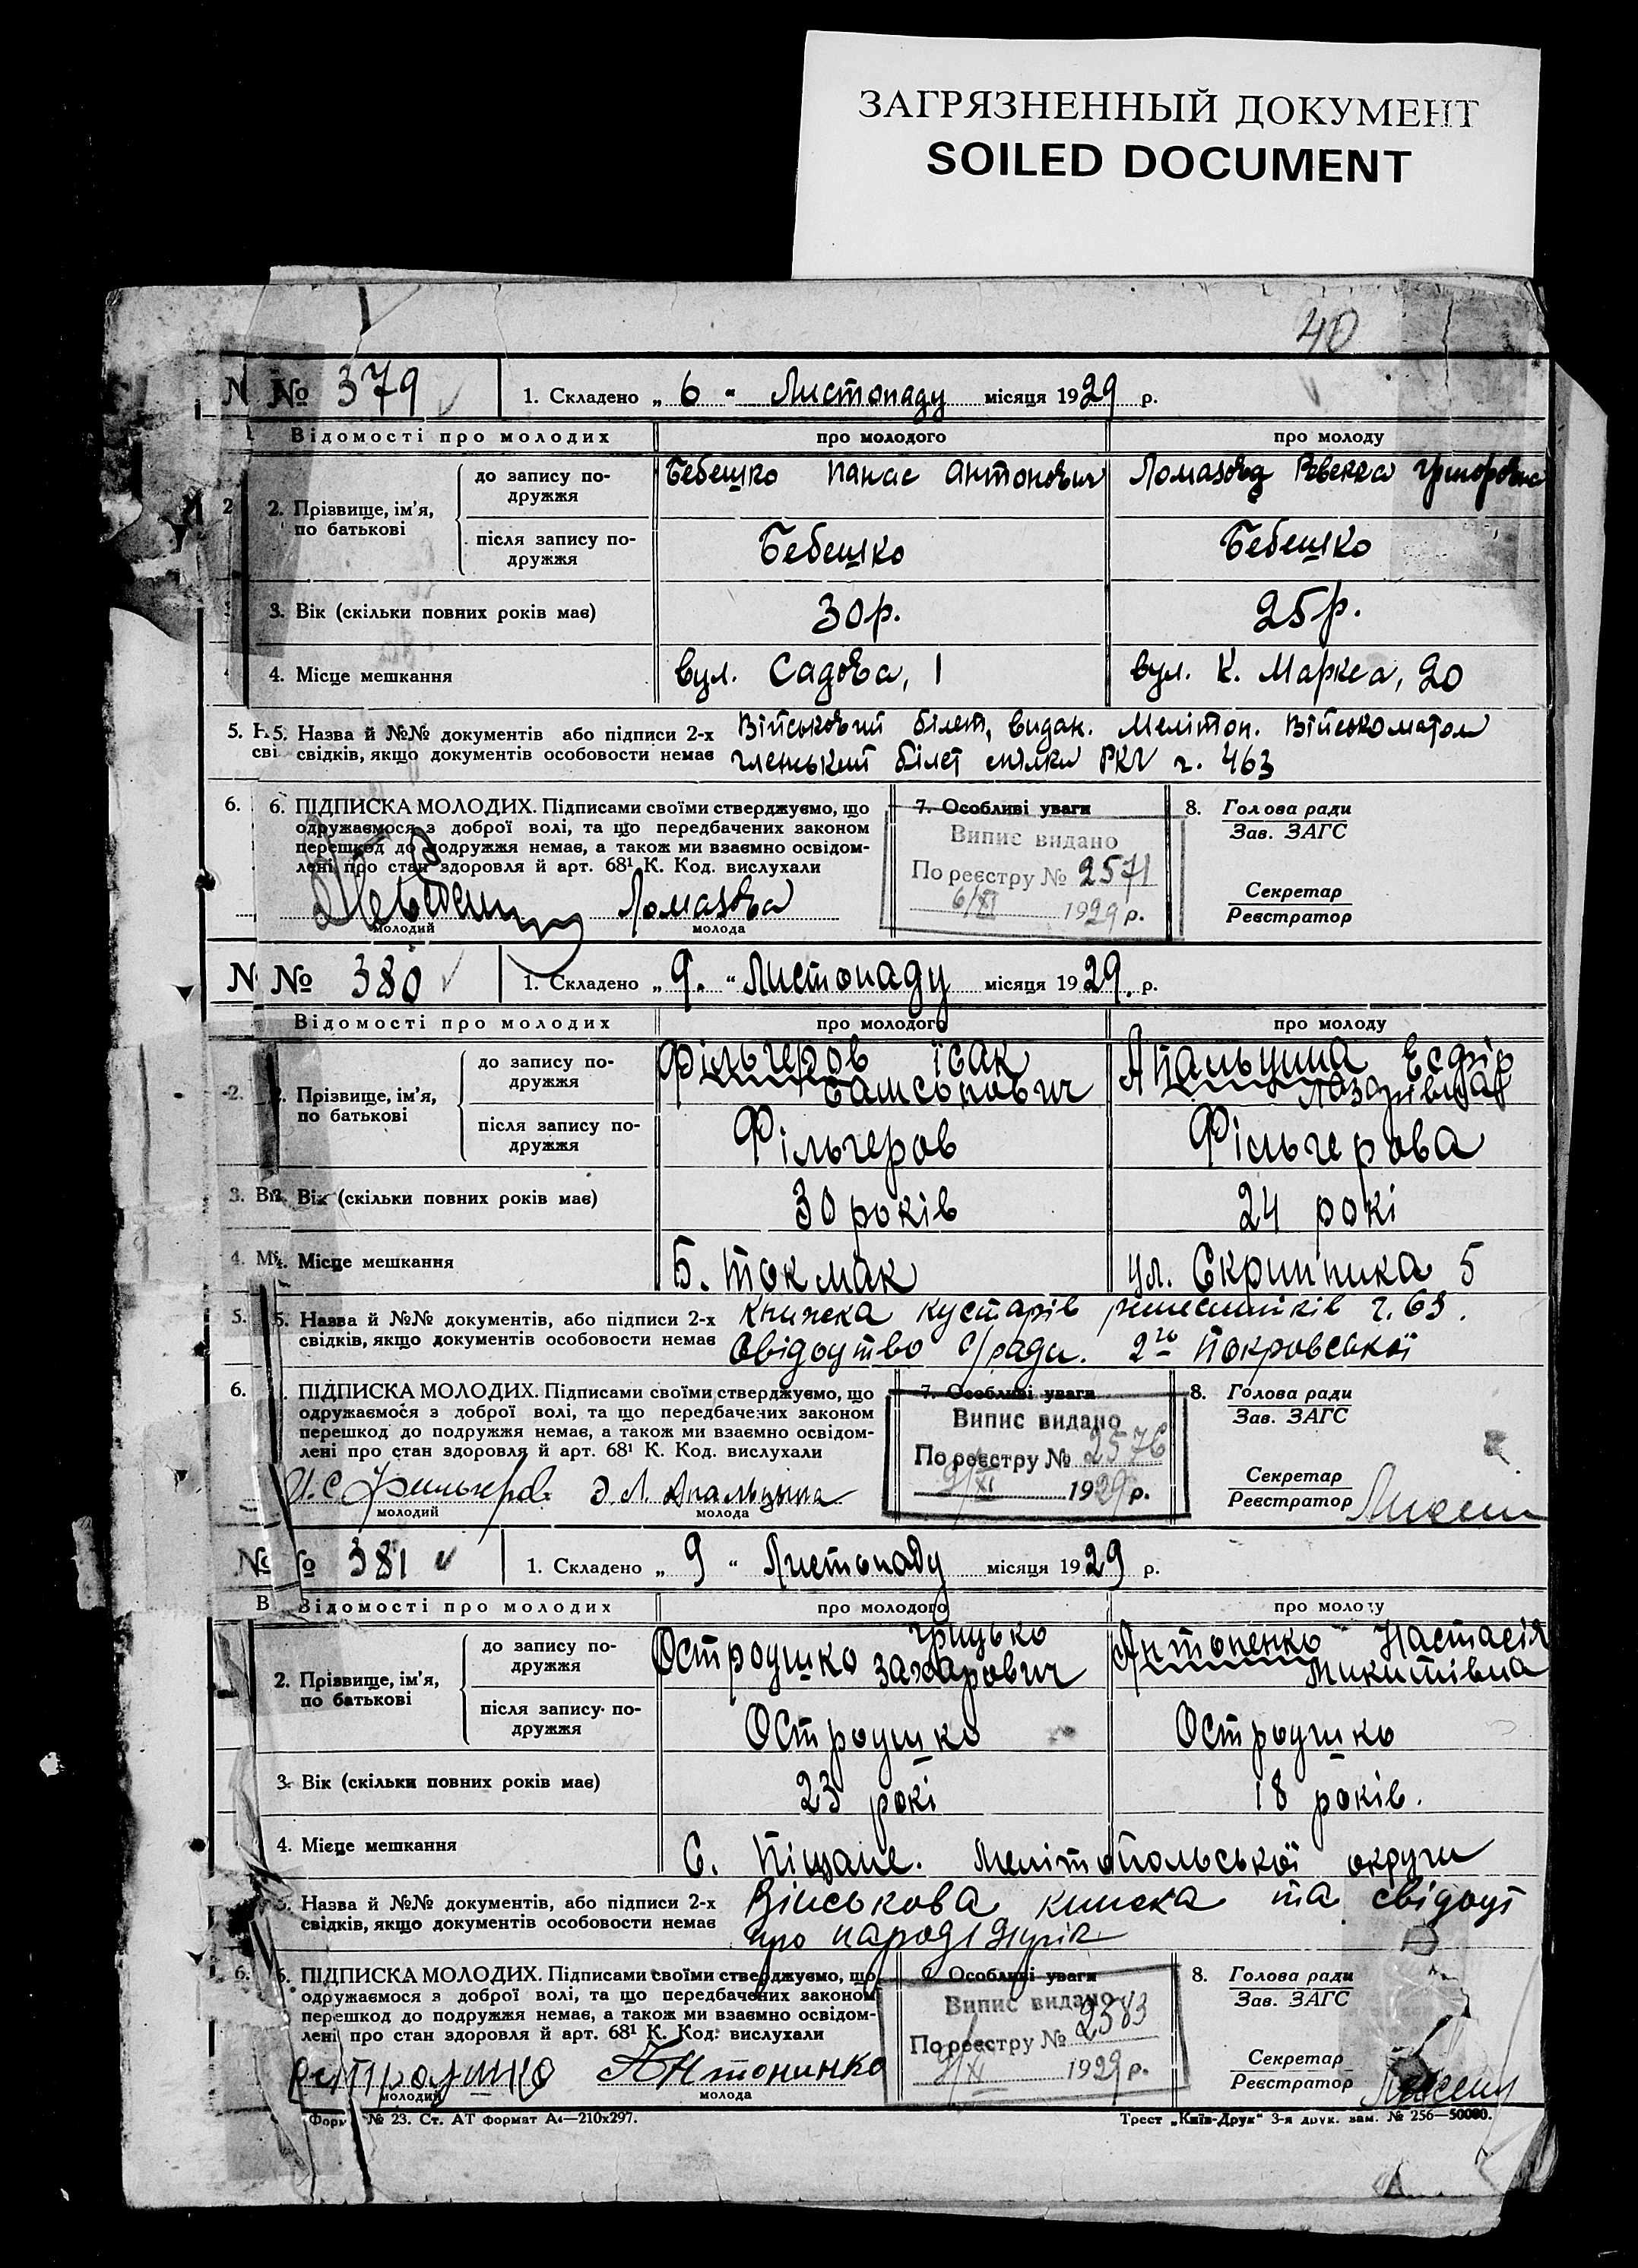 ЗАГРЯЗНЕННЫЙ ДОКУМЕНТ
SOILED DOCUMENT
40
№ 379
1. Складено „ 6 “ Листопаду місяця 1929 р.
Відомості про молодих
про молодого
про молоду
2. Прізвище, ім'я, по батькові
до запису по-
дружжя
Бебешко Панас Антонович
Ломазова Ревекка
після запису по-
дружжя
Бебешко
Бебешко
3. Вік (скільки повних років має)
30 р.
25 р.
4. Місце мешкання
вул. Садова, 1
вул. К. Маркса, 20
5. Назва й №№ документів або підписи 2-х
свідків, якщо документів особовости немає
Військовий білет, видан. Мелітоп. Військоматом
членський білет спілки ч. 463
6. ПІДПИСКА МОЛОДИХ. Підписами своїми стверджуємо, що
одружаємося з доброї волі, та що передбачених законом
перешкод до подружжя немає, а також ми взаємно освідом-
лені про стан здоровля й арт. 68¹ К. Код. вислухали
Ломазова
молодий
молода
7. Особливі уваги
Випис видано
По реєстру № 2571
6/XI 1929 р.
8. Голова ради
Зав. ЗАГС
Секретар
Реєстратор
№ 380
1. Складено „ 9. “ Листопаду місяця 1929. р.
Відомості про молодих
про молодого
про молоду
2. Прізвище, ім'я,
по батькові
до запису по-
дружжя
Фільгеров Ісак
Самсонович
Апальцина Есфір
Лазарівна
після запису по-
дружжя
Фільгеров
Фільгерова
3. Вік (скільки повних років має)
30 років
24 рокі
4. Місце мешкання
Б. Токмак
ул. Скрипника 5
5. Назва й №№ документів, або підписи 2-х
свідків, якщо документів особовости немає
Книжка кустарів ремесників ч. 63.
Свідоцтво с/ради. 2го Покровської
6. ПІДПИСКА МОЛОДИХ. Підписами своїми стверджуємо, що
одружаємося з доброї волі, та що передбачених законом
перешкод до подружжя немає, а також ми взаємно освідом-
лені про стан здоровля й арт. 68¹ К. Код. вислухали
И. С. Фильгеров. Э Л Апальцына
молодий
молода
7. Особливі уваги
Випис видано
По реєстру № 2576
9/XI 1929 р.
8. Голова ради
Зав. ЗАГС
Секретар
Реєстратор
№ 381
1. Складено „ 9 “ Листопаду місяця 1929 р.
Відомості про молодих
про молодого
про молоду
2. Прізвище, ім'я,
по батькові
до запису по-
дружжя
Грицько
Остроушко Захарович
Антоненко Настасія
Микитівна
після запису по-
дружжя
Остроушко
Остроушко
3. Вік (скільки повних років має)
23 рокі
18 років.
4. Місце мешкання
С. Піщане. Мелітопольської округи
5. Назва й №№ документів, або підписи 2-х
свідків, якщо документів особовости немає
Військова книжка та свідоцт
про
6. ПІДПИСКА МОЛОДИХ. Підписами своїми стверджуємо, що
одружаємося з доброї волі, та що передбачених законом
перешкод до подружжя немає, а також ми взаємно освідом-
лені про стан здоровля й арт. 68¹ К. Код. вислухали
Остроушко Антонинко
молодий
молода
7. Особливі уваги
Випис видано
По реєстру № 2583
9/XI 1929 р.
8. Голова ради
Зав. ЗАГС
Секретар
Реєстратор
Форм. № 23. Ст. АТ формат А4—210х297.
Трест „Київ-Друк“ 3-я друк. зам. № 256—50000.